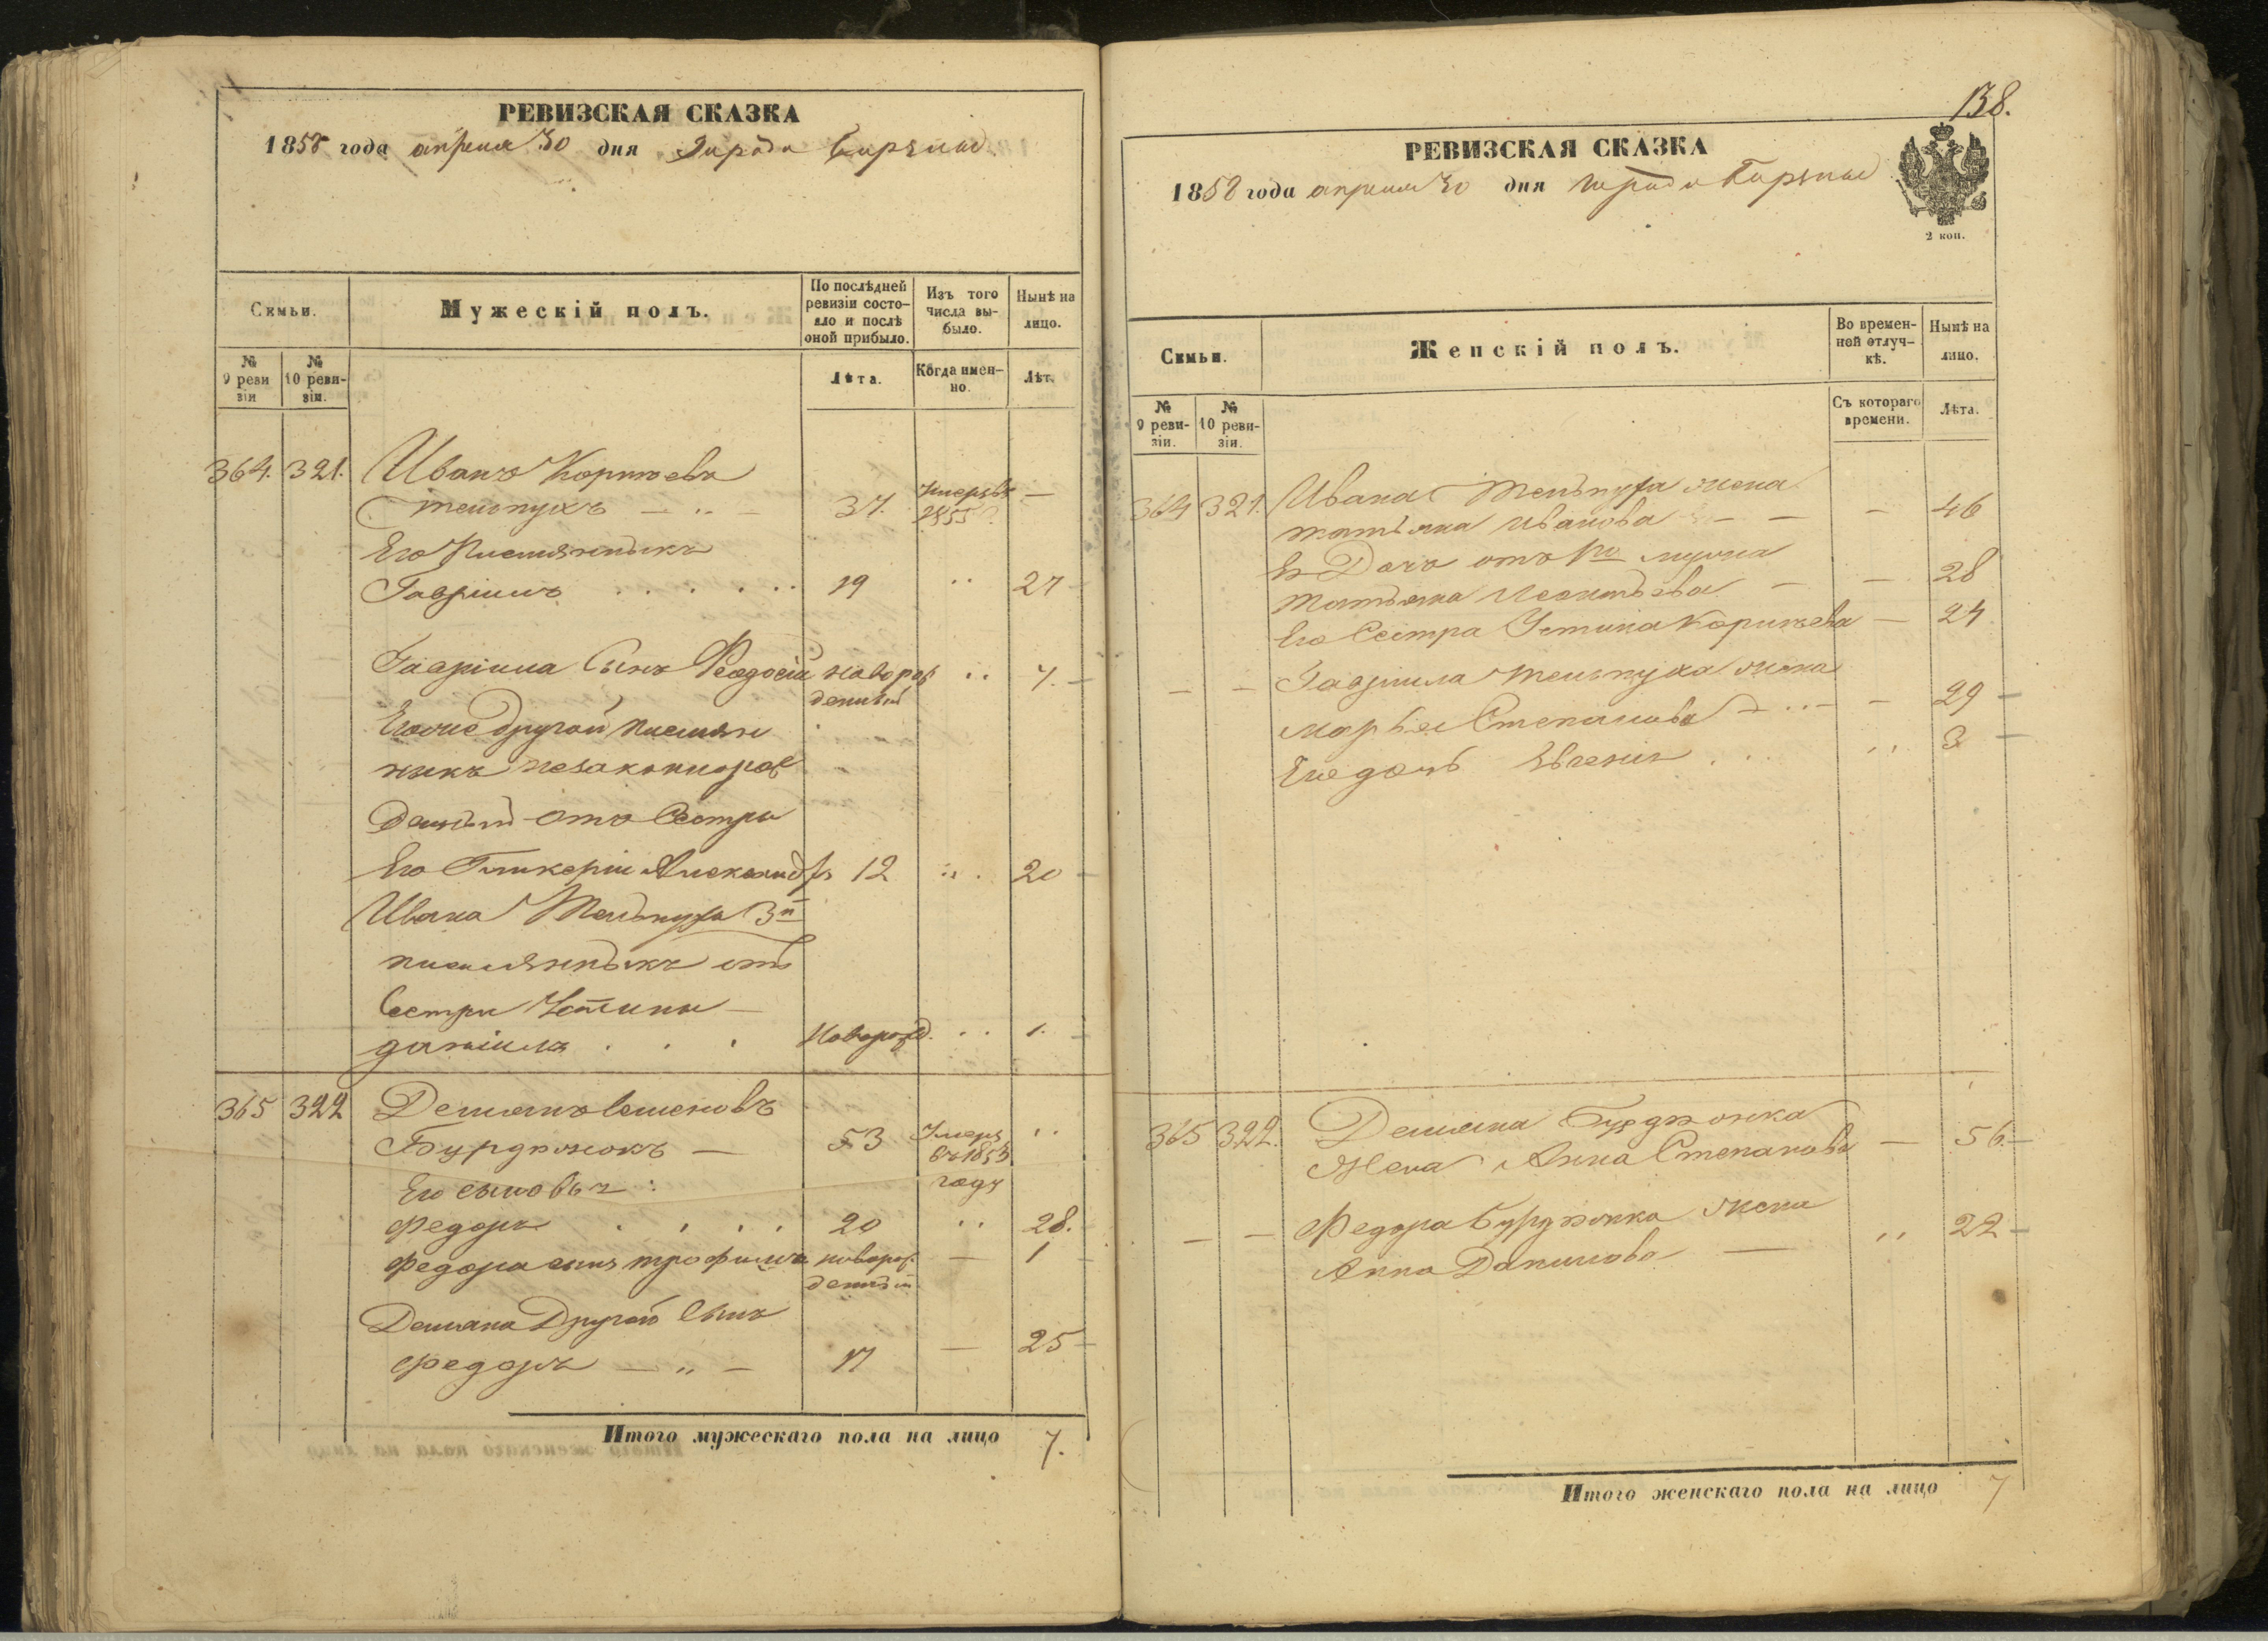 РЕВИЗСКАЯ СКАЗКА
1858 года апреля 30 дня Города
Сѣмьи.
Мужескій полъ.
По послѣдней ревизіи состояло и послѣ оной прибыло.
Изъ того числа выбыло.
Нынѣ на лицо.
№ 9 реви зіи
№ 10 ревизіи.
Лѣта.
Когда именно.
Лѣт.
364. 321. Иванъ
37. Умеръ въ 1855 —
Его Племянникъ
Гавріилъ . . . . . 19 .. 27
Гавріила Сынъ Феодосій новорожденный .. 7. —
Его же другой племян
никъ незаконнорож
денный отъ Сестры
Его Гликеріи Александръ 12 .. 20
Ивана 3й
племянникъ отъ
Сестры Устины —
Даніилъ . . . Новорожд. .. 1.
365 322 Демьянъ Семеновъ
Бурджокъ — 53 Умеръ въ 1853 году ..
Его сыновья:
Федоръ . . . . 20 .. 28.
Федора сынъ Трофимъ новорожденный — 1
Демьяна Другой Сынъ
Федоръ — „ — 17 — 25 —
Итого мужескаго пола на лицо 7.
138.
РЕВИЗСКАЯ СКАЗКА
1858 года апреля 30 дня Города
2 коп.
Сѣмьи.
Женскій полъ.
Во временной отлучкѣ.
Нынѣ на лицо.
№ 9 ревизіи.
№ 10 ревизіи.
Съ котораго времени.
Лѣта.
364 321. Ивана жена
Татьяна Иванова — — — 46
Ея Дочь отъ 1го мужа
Татьяна — — 28
Его Сестра Устина — 24
— — Гавріила жена
Марья Степанова — .. — — 29 —
Ея дочь Евгенія . . . .. 3 —
365 322. Демьяна Бурджока
Жена Анна Степанова — 56. —
— — Федора Бурджока жена
Анна Данилова — .. 22 —
Итого женскаго пола на лицо 7